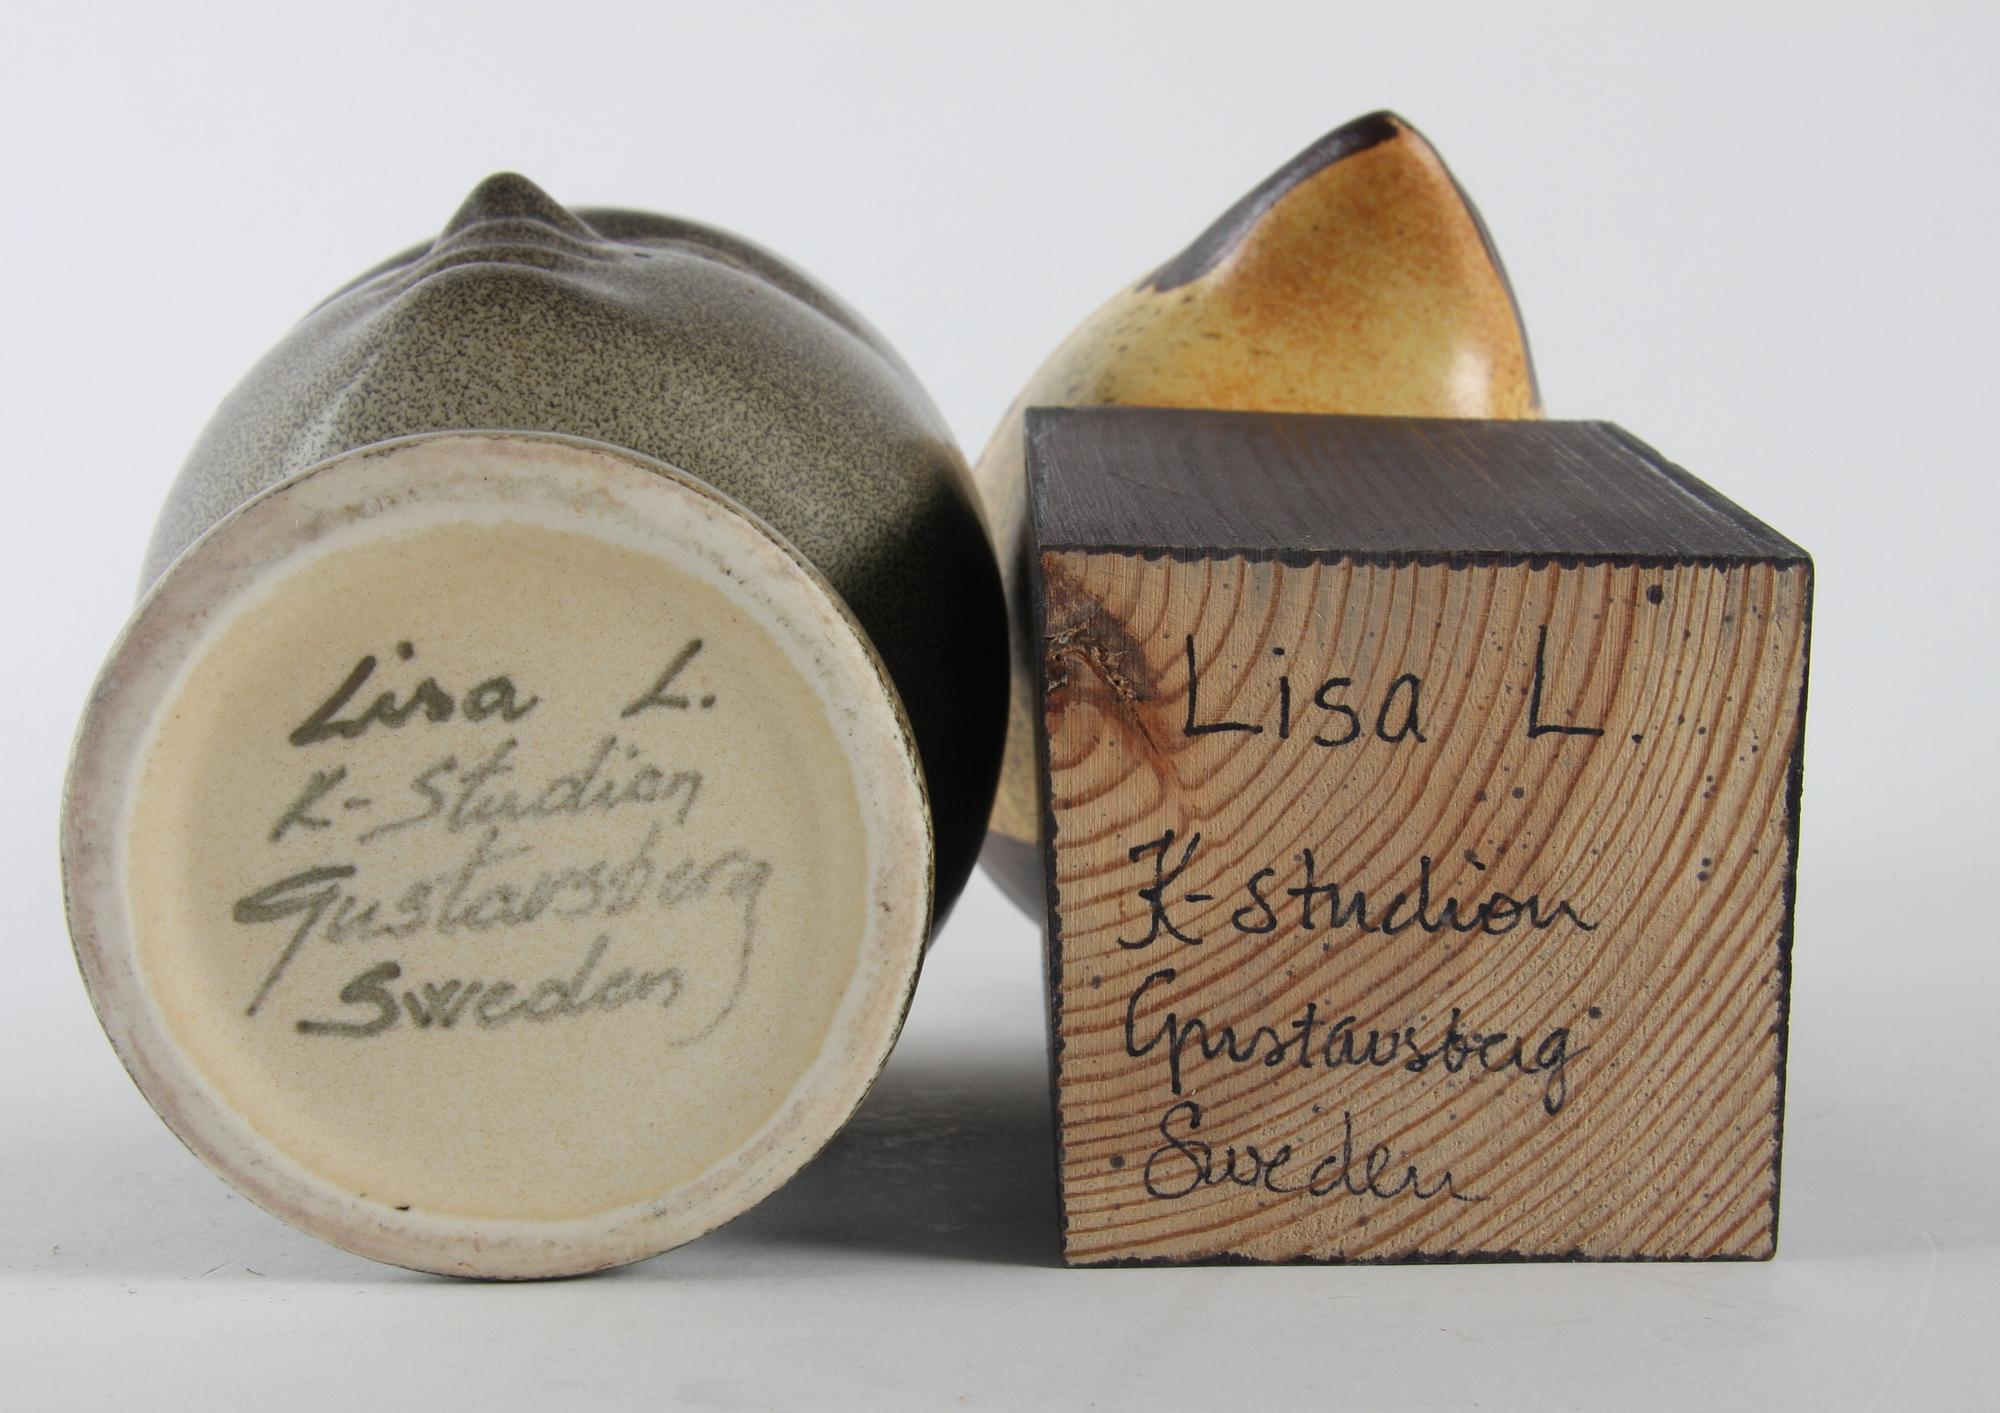 Lisa L.
K-Studion
Gustavsberg
Sweden
Lisa L.
K-Studion
Gustavsberg
Sweden